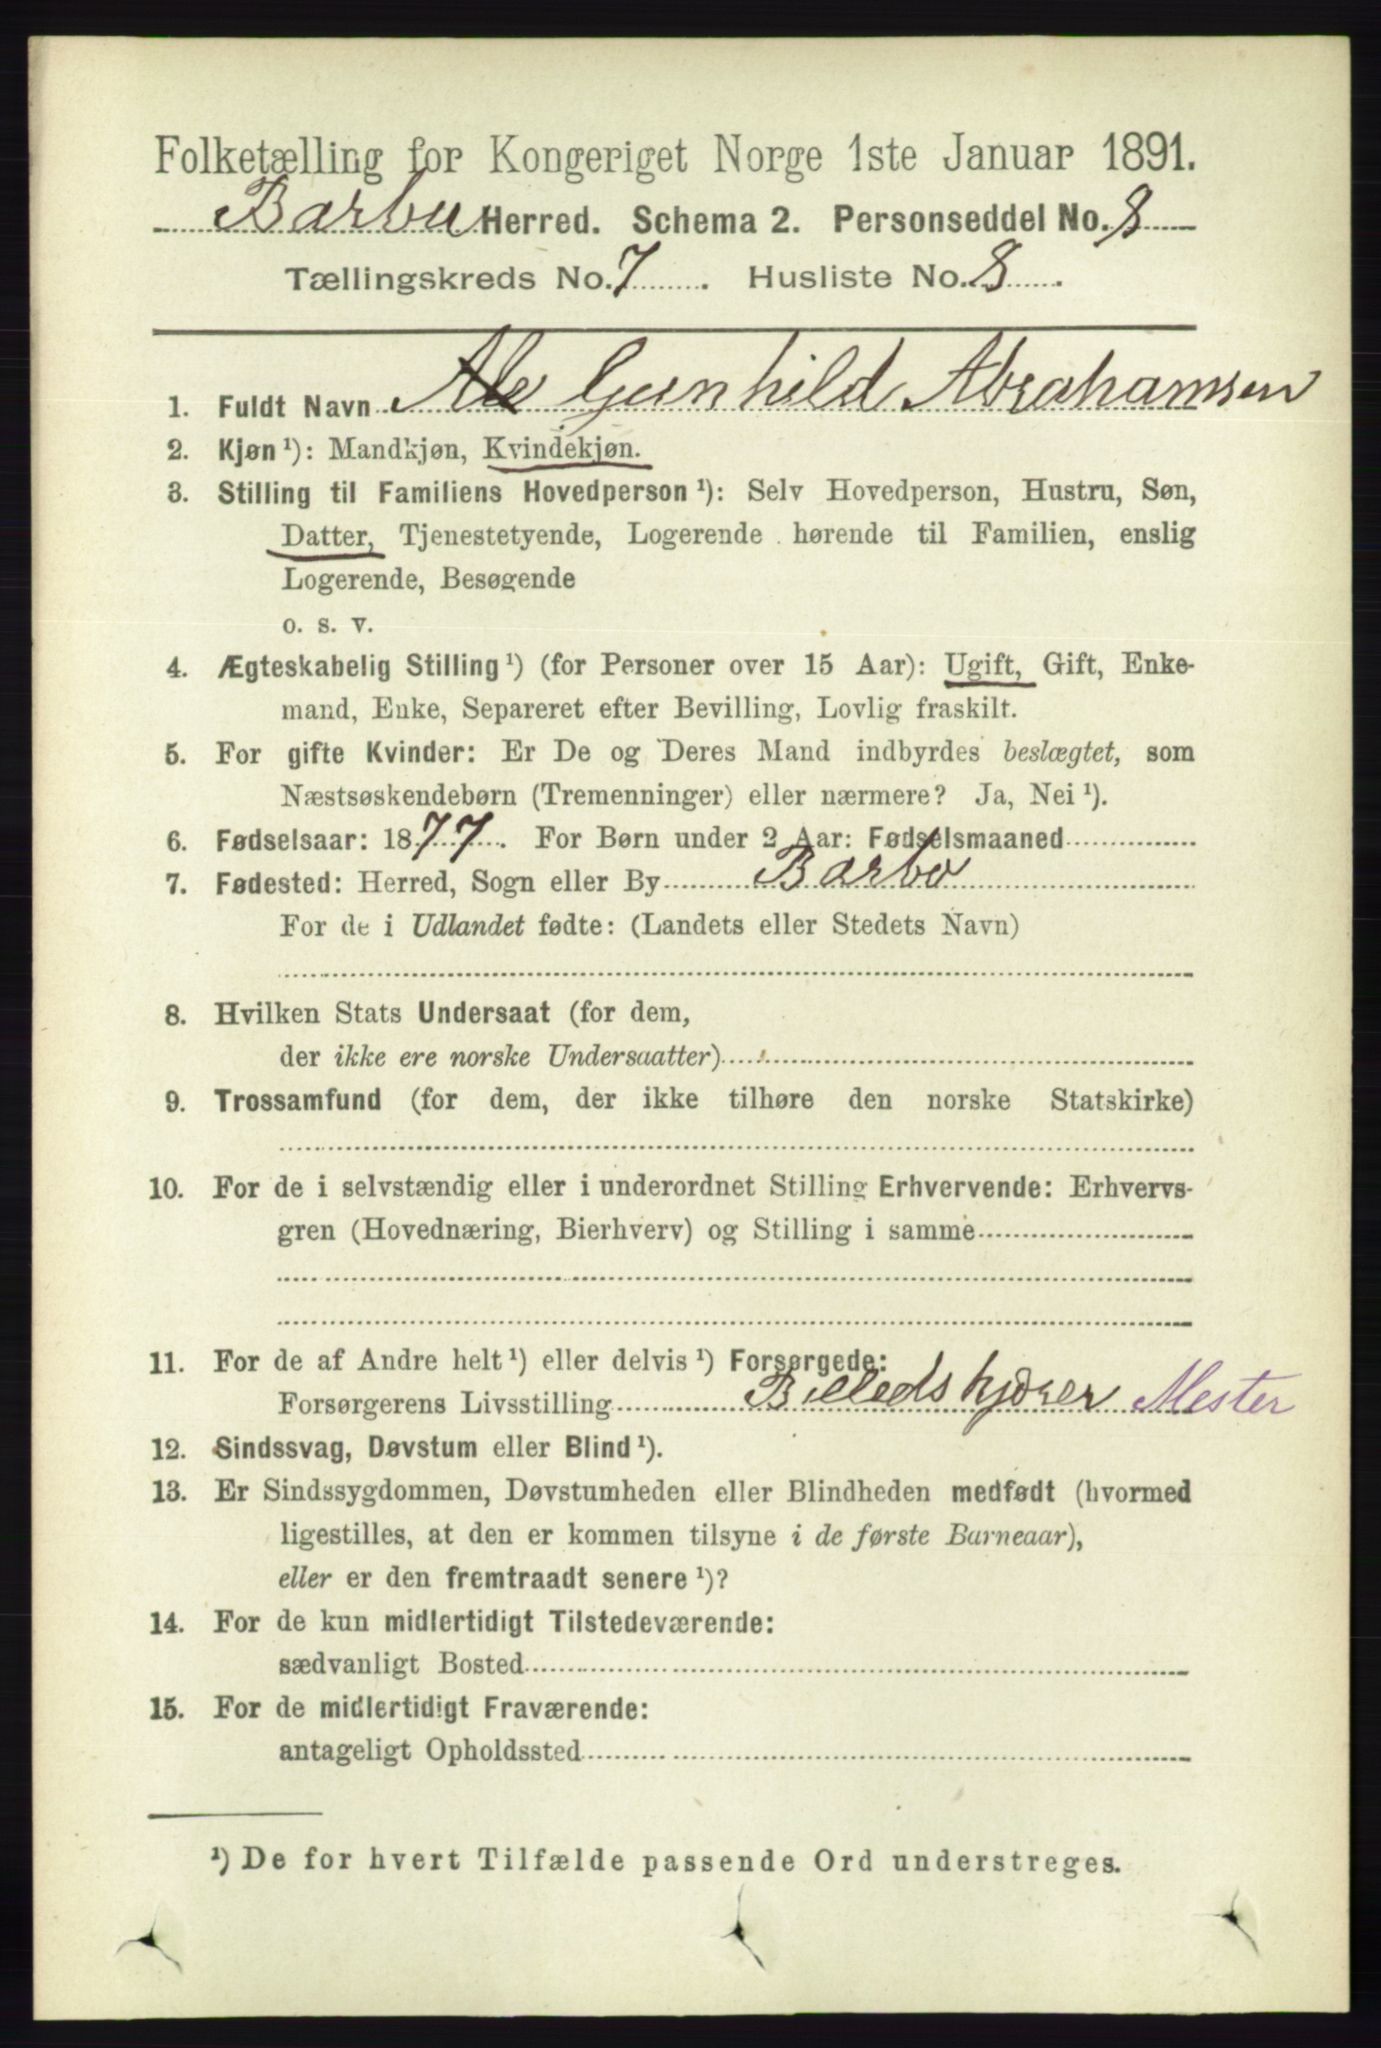 Folketælling for Kongeriget Norge 1ste Januar 1891.
Barbu Herred. Schema 2. Personseddel No. 8
Tællingskreds No. 7. Husliste No. 8.
1. Fuldt Navn Gunhild Abrahamsen
2. Kjøn ¹): Mandkjøn, Kvindekjøn.
3. Stilling til Familiens Hovedperson ¹): Selv Hovedperson, Hustru, Søn,
Datter, Tjenestetyende, Logerende hørende til Familien, enslig
Logerende, Besøgende
o. s. v.
4. Ægteskabelig Stilling ¹) (for Personer over 15 Aar): Ugift, Gift, Enke-
mand, Enke, Separeret efter Bevilling, Lovlig fraskilt.
5. For gifte Kvinder: Er De og Deres Mand indbyrdes beslægtet, som
Næstsøskendebørn (Tremenninger) eller nærmere? Ja, Nei ¹).
6. Fødselsaar: 1877. For Børn under 2 Aar: Fødselsmaaned
7. Fødested: Herred, Sogn eller By Barbo
For de i Udlandet fødte: (Landets eller Stedets Navn)
8. Hvilken Stats Undersaat (for dem,
der ikke ere norske Undersaatter)
9. Trossamfund (for dem, der ikke tilhøre den norske Statskirke)
10. For de i selvstændig eller i underordnet Stilling Erhvervende: Erhvervs-
gren (Hovednæring, Bierhverv) og Stilling i samme
11. For de af Andre helt ¹) eller delvis ¹) Forsørgede:
Forsørgerens Livsstilling Billedskjærer Mester
12. Sindssvag, Døvstum eller Blind ¹).
13. Er Sindssygdommen, Døvstumheden eller Blindheden medfødt (hvormed
ligestilles, at den er kommen tilsyne i de første Barneaar),
eller er den fremtraadt senere ¹)?
14. For de kun midlertidigt Tilstedeværende:
sædvanligt Bosted
15. For de midlertidigt Fraværende:
antageligt Opholdssted
¹) De for hvert Tilfælde passende Ord understreges.